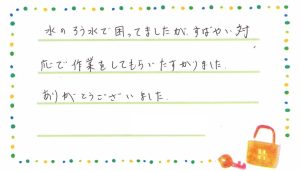 水のろう水で困ってましたが、すばやい対
応で作業をしてもらいたすかりました。
ありがとうございました。